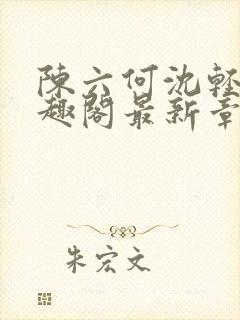 陳六何沈輕
趣閣最新章
朱宏文